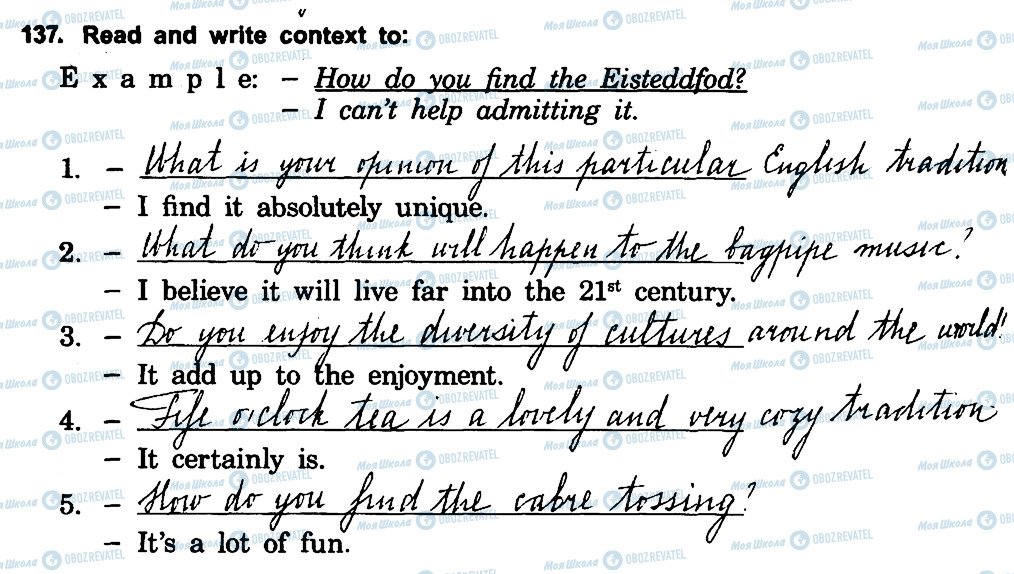 137. Read and write context to:
E x a m p l e: – How do you find the Eisteddfod?
– I can't help admitting it.
1. – What is your opinion of this particular English tradition
– I find it absolutely unique.
2. – What do you think will happen to the bagpipe music?
– I believe it will live far into the 21st century.
3. – Do you enjoy the diversity of cultures around the world?
– It add up to the enjoyment.
4. – Fife o'clock tea is a lovely and very cozy tradition
– It certainly is.
5. – How do you find the cabre tossing?
– It's a lot of fun.